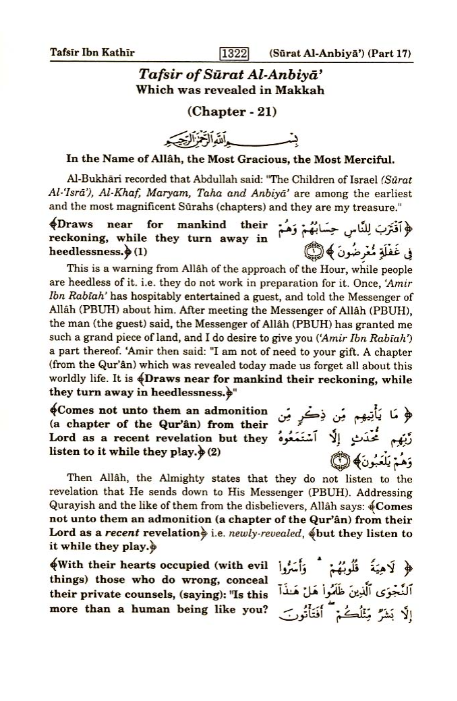 Tafsīr Ibn Kathīr 1322 (Sūrat Al-Anbiyā') (Part 17)
Tafsir of Sūrat Al-Anbiyā'
Which was revealed in Makkah
(Chapter - 21)
بِسْمِ اللَّهِ الرَّحْمَٰنِ الرَّحِيمِ
In the Name of Allâh, the Most Gracious, the Most Merciful.
Al-Bukhâri recorded that Abdullah said: "The Children of Israel (Sūrat
Al-'Isrâ'), Al-Khaf, Maryam, Taha and Anbiyâ' are among the earliest
and the most magnificent Sūrahs (chapters) and they are my treasure."
﴾Draws near for mankind their
reckoning, while they turn away in
heedlessness.﴿ (1)
﴿ ٱقْتَرَبَ لِلنَّاسِ حِسَابُهُمْ وَهُمْ
فِى غَفْلَةٍ مُّعْرِضُونَ ﴾ ١
This is a warning from Allâh of the approach of the Hour, while people
are heedless of it. i.e. they do not work in preparation for it. Once, 'Amir
Ibn Rabīah' has hospitably entertained a guest, and told the Messenger of
Allâh (PBUH) about him. After meeting the Messenger of Allâh (PBUH),
the man (the guest) said, the Messenger of Allâh (PBUH) has granted me
such a grand piece of land, and I do desire to give you ('Amir Ibn Rabīah')
a part thereof. 'Amir then said: "I am not of need to your gift. A chapter
(from the Qur'ân) which was revealed today made us forget all about this
worldly life. It is ﴾Draws near for mankind their reckoning, while
they turn away in heedlessness.﴿"
﴾Comes not unto them an admonition
(a chapter of the Qur'ân) from their
Lord as a recent revelation but they
listen to it while they play.﴿ (2)
﴿ مَا يَأْتِيهِم مِّن ذِكْرٍ مِّن
رَّبِّهِم مُّحْدَثٍ إِلَّا ٱسْتَمَعُوهُ
وَهُمْ يَلْعَبُونَ ﴾ ٢
Then Allâh, the Almighty states that they do not listen to the
revelation that He sends down to His Messenger (PBUH). Addressing
Qurayish and the like of them from the disbelievers, Allâh says: ﴾Comes
not unto them an admonition (a chapter of the Qur'ân) from their
Lord as a recent revelation﴿ i.e. newly-revealed, ﴾but they listen to
it while they play.﴿
﴾With their hearts occupied (with evil
things) those who do wrong, conceal
their private counsels, (saying): "Is this
more than a human being like you?
﴿ لَاهِيَةً قُلُوبُهُمْ ۗ وَأَسَرُّوا۟
ٱلنَّجْوَى ٱلَّذِينَ ظَلَمُوا۟ هَلْ هَٰذَآ
إِلَّا بَشَرٌ مِّثْلُكُمْ ۖ أَفَتَأْتُونَ